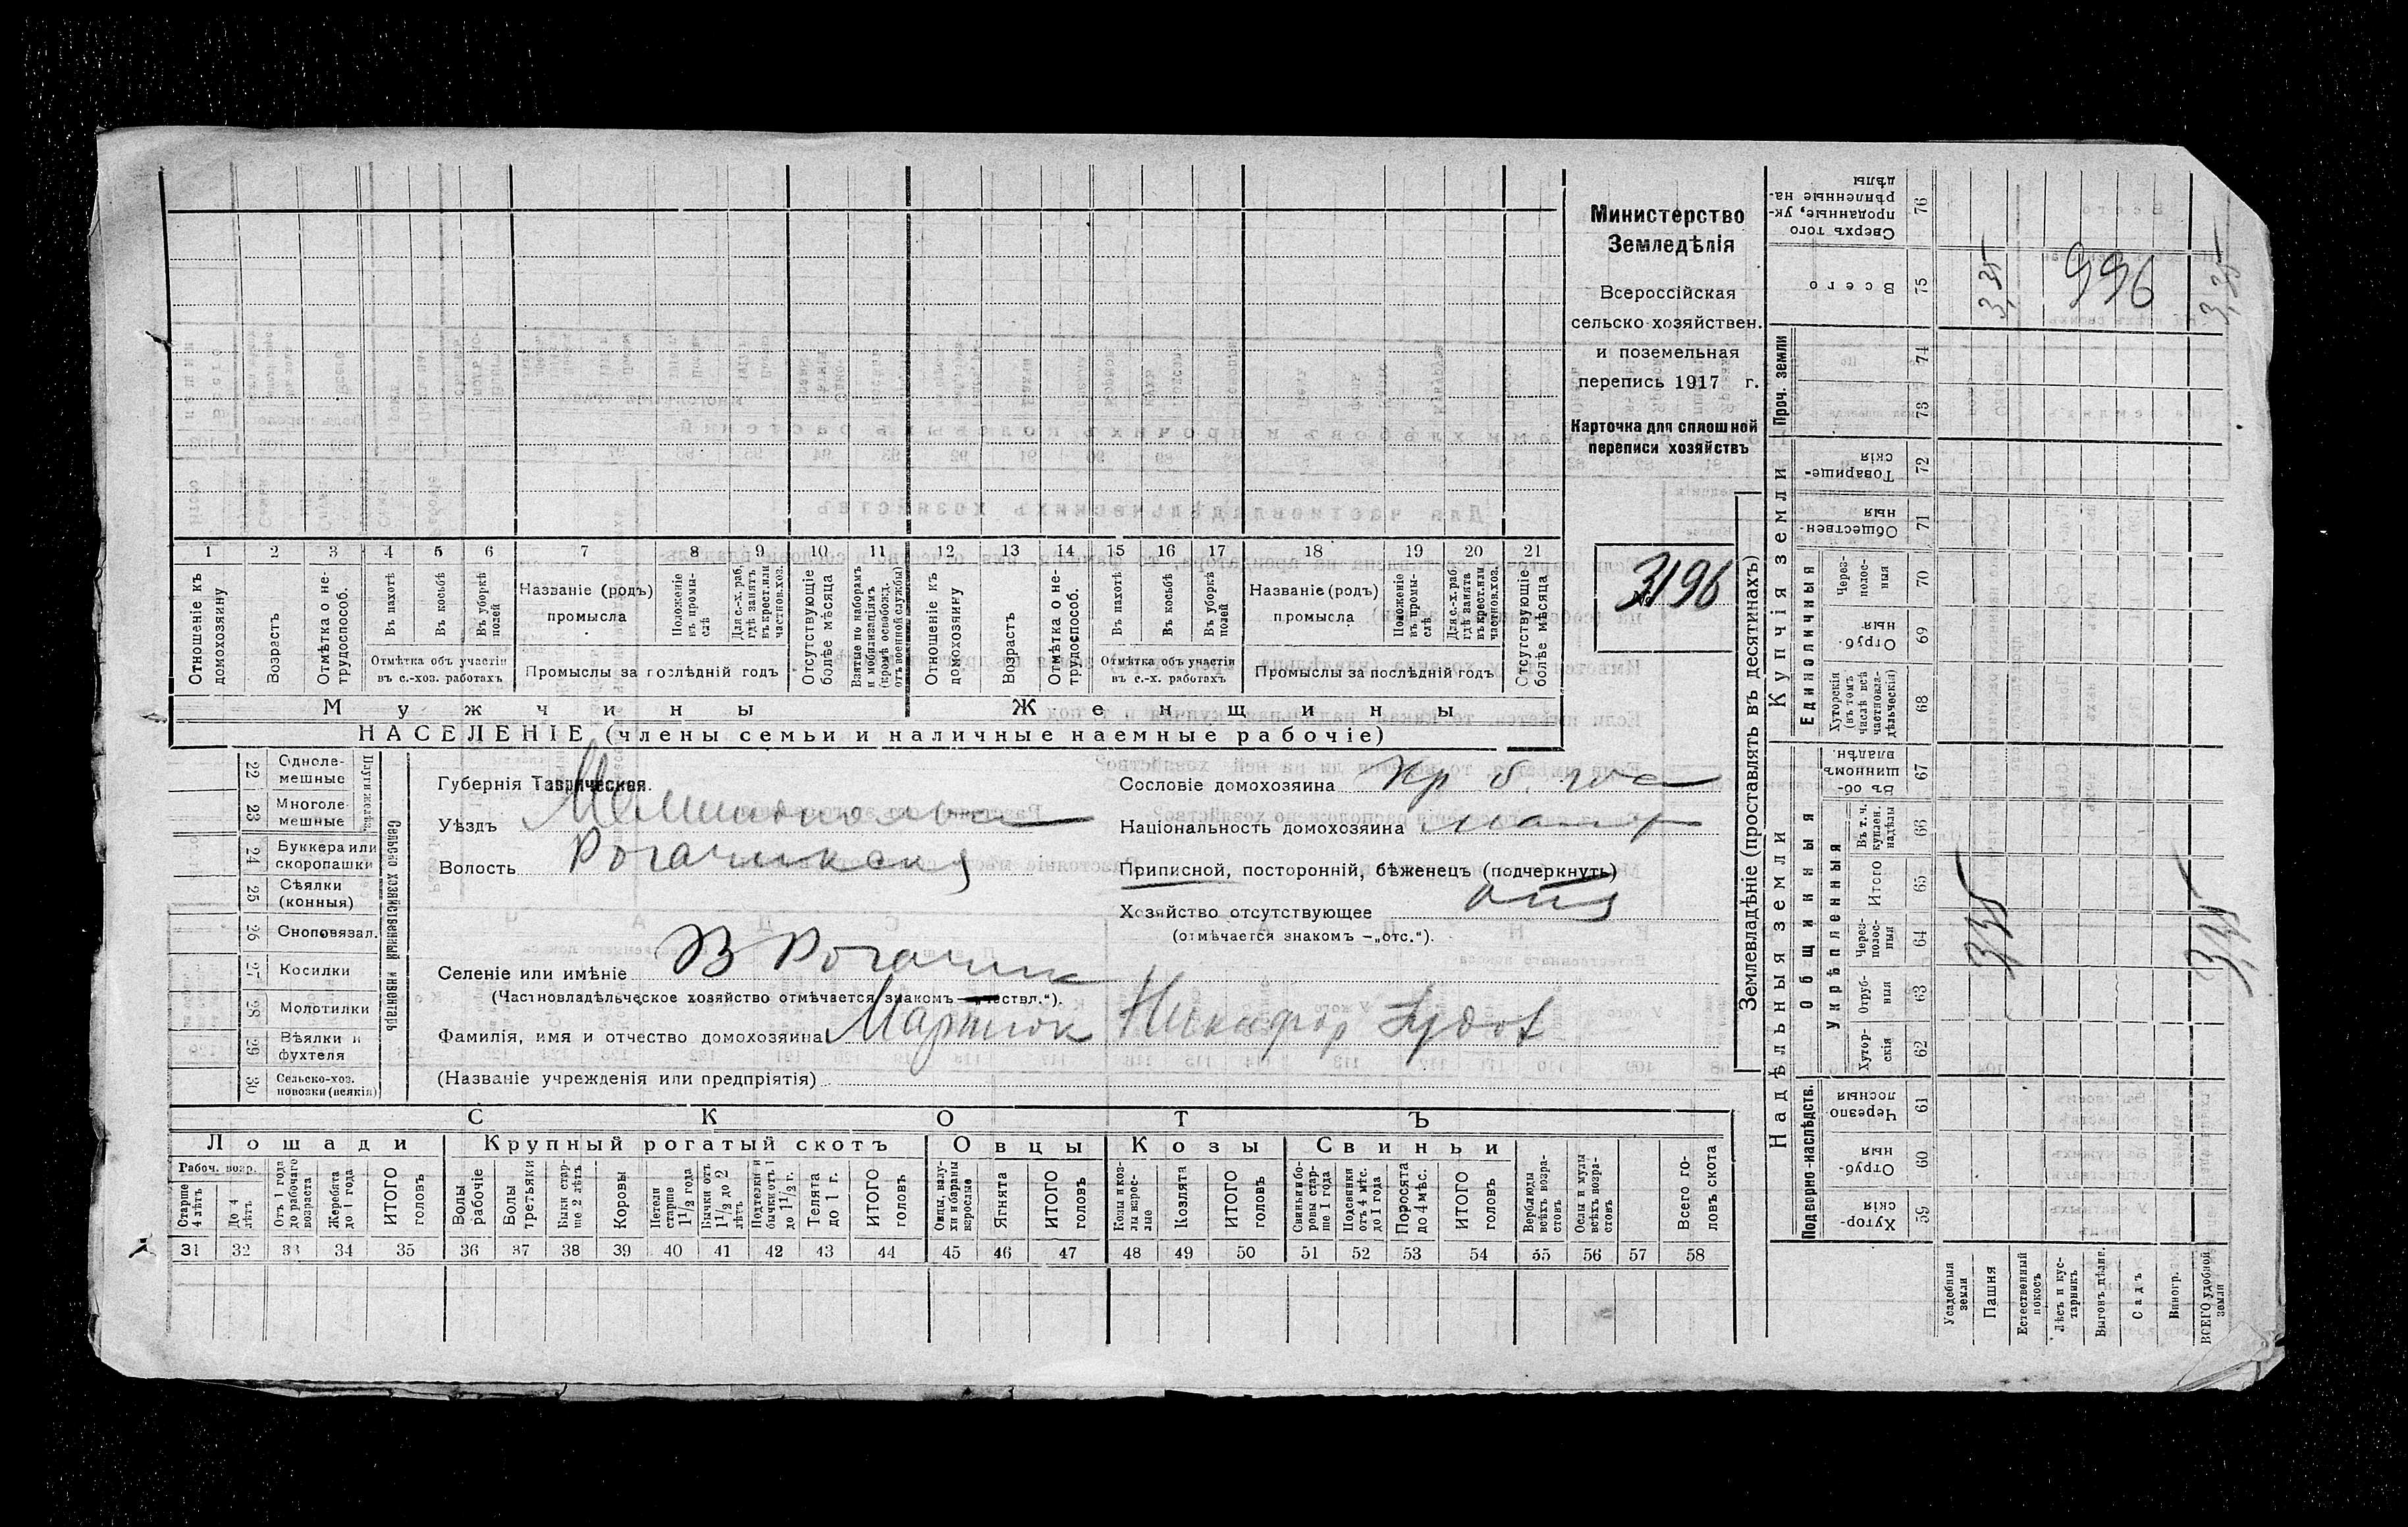 Министерство
Земледѣлія
Всероссійская
сельско-хозяйствен.
и поземельная
перепись 1917 г.
Карточка для сплошной
переписи хозяйствъ
3196
1 2 3 4 5 6 7 8 9 10 11 12 13 14 15 16 17 18 19 20 21
Отношеніе къ домохозяину
Возрастъ
Отмѣтка о не-трудоспособ.
Въ пахотѣ
Въ косьбѣ
Въ уборкѣ полей
Отмѣтка объ участіи въ с.-хоз. работахъ
Названіе (родъ) промысла
Положеніе въ промы-слѣ
Для с.-х. раб, гдѣ занятъ въ крест. или частнов. хоз.
Промыслы за послѣдній годъ
Отсутствующіе болѣе мѣсяца
Взятые по наборамъ и мобилизаціямъ (кромѣ освобожд. отъ военной службы)
Отношеніе къ домохозяину
Возрастъ
Отмѣтка о не-трудоспособ.
Въ пахотѣ
Въ косьбѣ
Въ уборкѣ полей
Отмѣтка объ участіи въ с.-х. работахъ
Названіе (родъ) промысла
Положеніе въ промы-слѣ
Для с.-х. раб. гдѣ занята въ крест. или частнов. хоз.
Промыслы за послѣдній годъ
Отсутствующіе болѣе мѣсяца
Мужчины Женщины
НАСЕЛЕНІЕ (члены семьи и наличные наемные рабочіе)
Сельско хозяйственный инвентарь
22 Однолемешные
23 Многолемешные
24 Буккера или скоропашки
25 Сѣялки (конныя)
26 Сноповязал.
27 Косилки
28 Молотилки
29 Вѣялки и фухтеля
30 Сельско-хоз. повозки (всякія)
Губернія Таврическая.
Уѣздъ
Волость Рогачикская
Селеніе или имѣніе В Рогачик
(Частновладѣльческое хозяйство отмѣчается знакомъ —„частвл.“).
Фамилія, имя и отчество домохозяина Мартюк Никифор
(Названіе учрежденія или предпріятія)
Сословіе домохозяина Кр б.
Національность домохозяина
Приписной, посторонній, бѣженецъ (подчеркнуть)
Хозяйство отсутствующее
(отмѣчается знакомъ —„отс.“).
СКОТЪ
Лошади Крупный рогатый скотъ Овцы Козы Свиньи
Рабоч. возр.
Старше 4 лѣтъ
До 4 лѣтъ.
Отъ 1 года до рабочаго возраста
Жеребята до 1 года
ИТОГО головъ
Волы рабочіе
Волы третьяки
Быки стар-ше 2 лѣтъ
Коровы
Нетели старше 1 1/2 года
Бычки отъ 1 1/2 до 2 лѣтъ
Подтелки и бычки отъ 1 до 1 1/2 г.
Телята до 1 г.
ИТОГО головъ
Овцы, валу-хи и бараны взрослые
Ягнята
ИТОГО головъ
Козы и коз-лы взрос-лые
Козлята
ИТОГО головъ
Свиньи и бо-ровы стар-ше 1 года
Подсвинки отъ 4 мѣс. до 1 года
Поросята до 4 мѣс.
ИТОГО головъ
Верблюды всѣхъ возра-стовъ
Ослы и мулы всѣхъ возра-стовъ
Всего го-ловъ скота
31 32 33 34 35 36 37 38 39 40 41 42 43 44 45 46 47 48 49 50 51 52 53 54 55 56 57 58
Землевладѣніе (проставлять въ десятинахъ)
Надѣльныя земли Купчія земли Проч. земли
Подворно-наслѣдств. Общинныя Единоличныя
Укрѣпленныя
Хутор-скія 59
Отруб-ныя 60
Черезпо лосныя 61
Хутор-скія 62
Отруб-ныя 63
Через-полос-ныя 64
Итого 65
Въ т. ч. куплен. надѣлы 66
Въ об-щинномъ владѣн. 67
Хуторскія (въ томъ числѣ всѣ частновла-дѣльческія) 68
Отруб-ныя 69
Через-полос-ныя 70
Обществен-ныя 71
Товарище-скія 72
73
74
Всего 75
Сверхъ того проданные, ук-рѣпленные на-дѣлы 76
Усадебныя земли
Пашня
Естественный покосъ
Лѣсъ и кус-тарникъ
Выгонъ дѣлин.
Садъ
Виногр.
ВСЕГО удобной земли
3,35
996
3,35